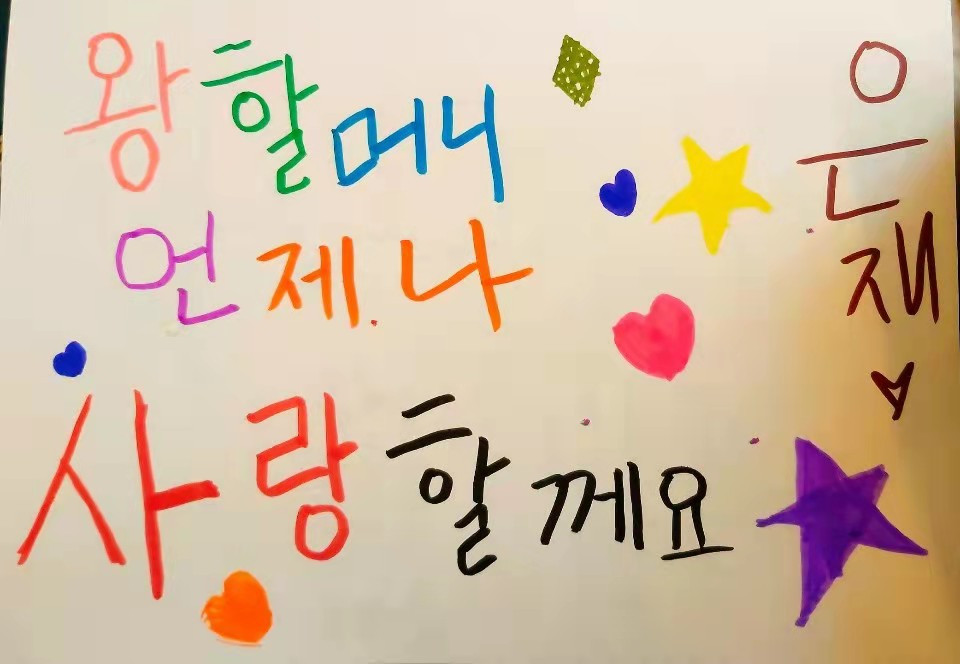 왕할머니
언제나
사랑할께요
은재